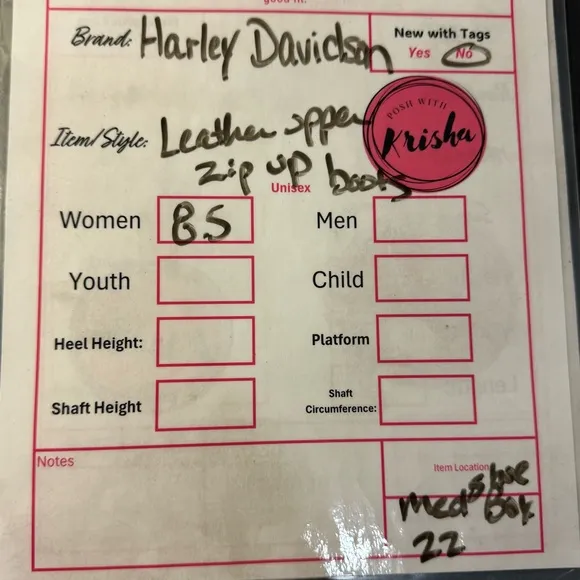 good fit.
Brand: Harley Davidson
New with Tags
Yes No
Item/Style: Leather upper
zip up boots
POSH WITH
Krisha
Unisex
Women 8.5 Men
Youth Child
Heel Height: Platform
Shaft Height Shaft
Circumference:
Notes
Item Location
med shoe
box
22